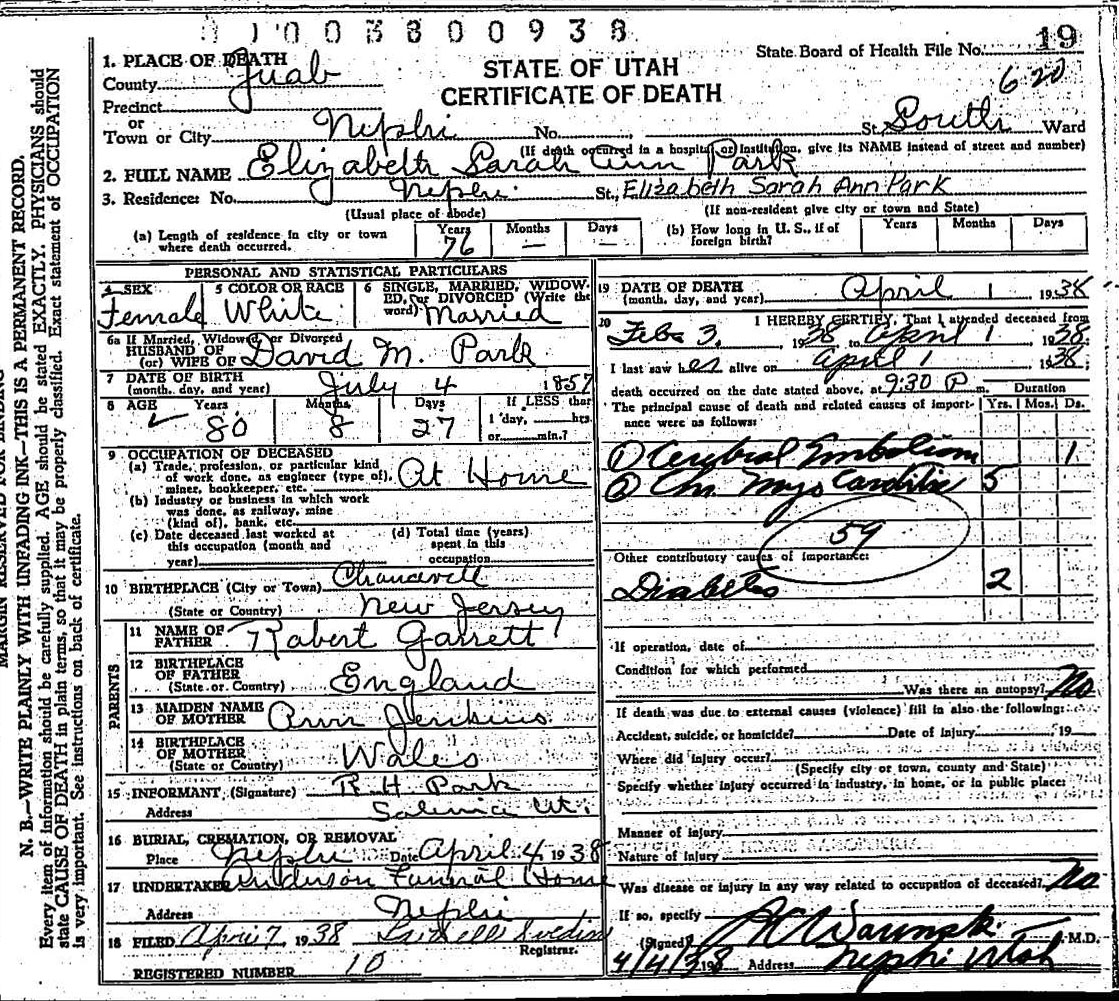 0 1 0 0 3 8 0 0 9 3 8
State Board of Health File No. 19
6 20
STATE OF UTAH
CERTIFICATE OF DEATH
1. PLACE OF DEATH
County Juab
Precinct
or
Town or City Nephi No. St. South Ward
(If death occurred in a hospital or institution, give its NAME instead of street and number)
2. FULL NAME Elizabeth Sarah Ann Park
3. Residence: No. Nephi St., Elizabeth Sarah Ann Park
(Usual place of abode) (If non-resident give city or town and State)
(a) Length of residence in city or town where death occurred. Years 76 Months — Days —
(b) How long in U. S., if of foreign birth? Years Months Days
PERSONAL AND STATISTICAL PARTICULARS
4 SEX Female
5 COLOR OR RACE White
6 SINGLE, MARRIED, WIDOWED, or DIVORCED (Write the word) Married
6a If Married, Widowed or Divorced
HUSBAND OF
(or) WIFE OF David M. Park
7 DATE OF BIRTH
(month, day, and year) July 4 1857
8 AGE Years 80 Months 8 Days 27 If LESS than
1 day, hrs.
or min.?
9 OCCUPATION OF DECEASED
(a) Trade, profession, or particular kind
of work done, as engineer (type of), At Home
miner, bookkeeper, etc.
(b) Industry or business in which work
was done, as railway, mine
(kind of), bank, etc.
(c) Date deceased last worked at
this occupation (month and
year)
(d) Total time (years)
spent in this
occupation
10 BIRTHPLACE (City or Town)
(State or Country) New Jersey
PARENTS
11 NAME OF
FATHER Robert Garrett
12 BIRTHPLACE
OF FATHER
(State or Country) England
13 MAIDEN NAME
OF MOTHER Ann Jenkins
14 BIRTHPLACE
OF MOTHER
(State or Country) Wales
15 INFORMANT (Signature) R H Park
Address Salina Ut.
16 BURIAL, CREMATION, OR REMOVAL
Place Nephi Date April 4 1938
17 UNDERTAKER Anderson Funeral Home
Address Nephi
18 FILED April 7 1938
Registrar.
REGISTERED NUMBER 10
19 DATE OF DEATH
(month, day, and year) April 1 1938
20 I HEREBY CERTIFY, That I attended deceased from
Feb 3, 1938 to April 1 1938
I last saw her alive on April 1 1938;
death occurred on the date stated above, at 9:30 P m.
The principal cause of death and related causes of importance were as follows:
Duration
Yrs. Mos. Ds.
① Cerebral Embolism 1
② Chr. Myo Carditis 5
59
Other contributory causes of importance:
Diabetes 2
If operation, date of
Condition for which performed
Was there an autopsy? No
If death was due to external causes (violence) fill in also the following:
Accident, suicide, or homicide? Date of injury 19
Where did injury occur?
(Specify city or town, county and State)
Specify whether injury occurred in industry, in home, or in public place:
Manner of injury
Nature of injury
Was disease or injury in any way related to occupation of deceased? No
If so, specify
(Signed) M.D.
4/4/38 193 Address Nephi Utah
MARGIN RESERVED FOR BINDING
N. B.—WRITE PLAINLY WITH UNFADING INK—THIS IS A PERMANENT RECORD.
Every item of information should be carefully supplied. AGE should be stated EXACTLY. PHYSICIANS should
state CAUSE OF DEATH in plain terms, so that it may be properly classified. Exact statement of OCCUPATION
is very important. See instructions on back of certificate.